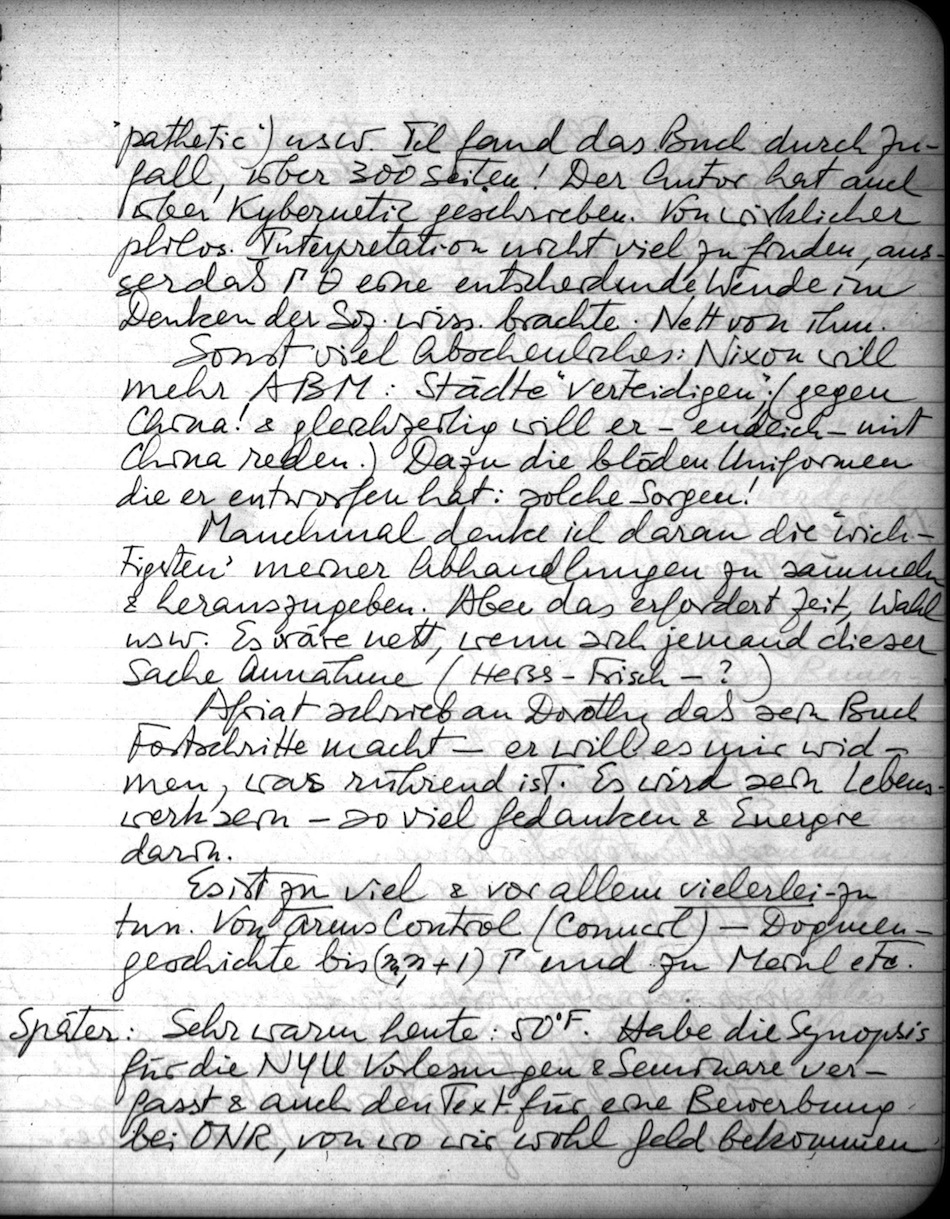 "pathetic") usw. Ich fand das Buch durch Zu-
fall, über 300 Seiten! Der Autor hat auch
über Kybernetik geschrieben. Von wirklicher
philos. Interpretation nicht viel zu finden, aus-
ser daß Γ Θ eine entscheidende Wende im
Denken der Soz. wiss. brachte. Nett von ihm.
Sonst viel Abscheuliches: Nixon will
mehr ABM: Städte "verteidigen"; (gegen
China! & gleichzeitig will er – endlich – mit
China reden.) Dazu die blöden Uniformen
die er entworfen hat: solche Sorgen!
Manchmal denke ich daran die "wich-
tigsten" meiner Abhandlungen zu sammeln
& herauszugeben. Aber das erfordert Zeit, Wahl
usw. Es wäre nett, wenn sich jemand dieser
Sache annähme (Heiss – Frisch – ?)
Afriat schrieb an Dorothy das sein Buch
Fortschritte macht – er will es mir wid-
men, was rührend ist. Es wird sein Lebens-
werk sein – so viel Gedanken & Energie
darin.
Es ist zu viel & vor allem vielerlei zu
tun. Von Arms Control (Council) – Dogmen-
geschichte bis (n, n+1) Γ und zu Meinl etc.
Später: Sehr warm heute: 50°F. Habe die Synopsis
für die NYU Vorlesungen & Seminare ver-
fasst & auch den Text für eine Bewerbung
bei ONR, von wo wir wohl Geld bekommen